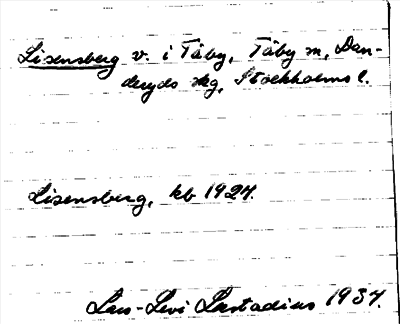 Lisensberg v. i Täby, Täby sn, Dan-
deryds skg, Stockholms l.
Lisensberg, kb 1924.
Lars-Levi Læstadius 1934.